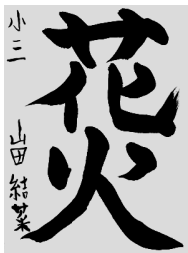 花火
小三 山田 結菜